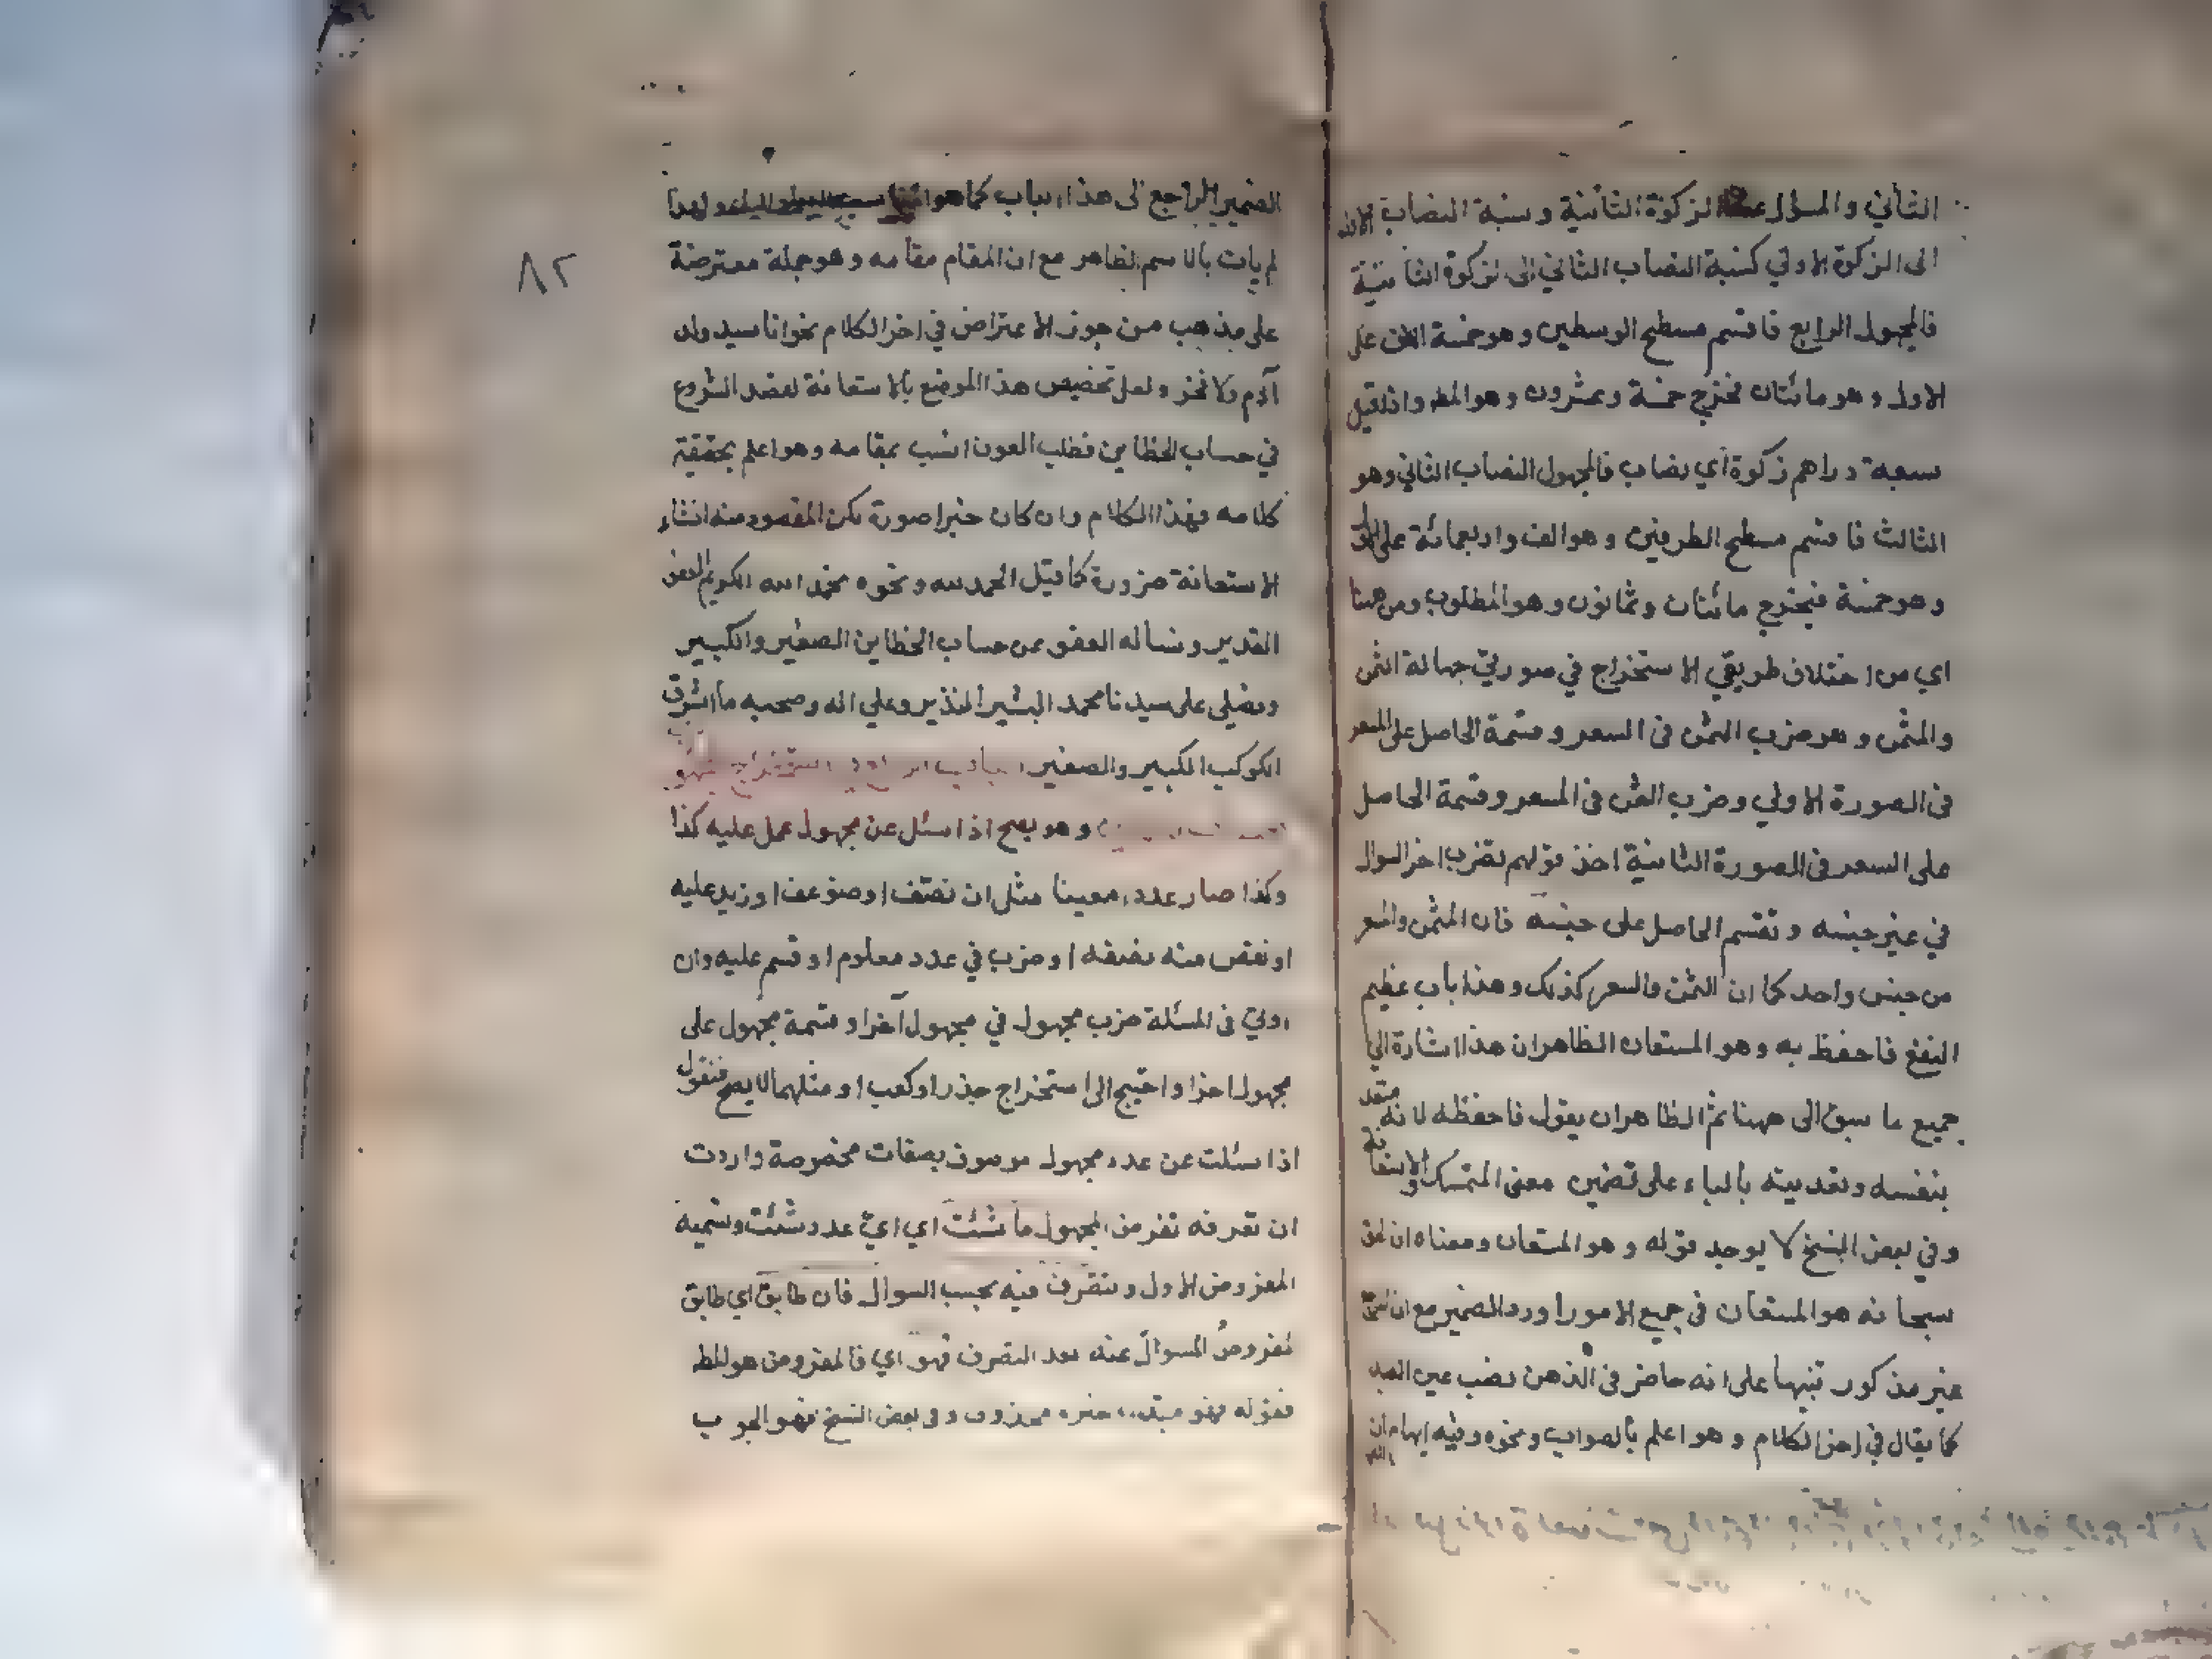 الثاني والمسؤل عنه الزكوة الثانية ونسبة النصاب الاول
الى الزكوة الاولي كنسبة النصاب الثاني الى الزكوة الثانية
فالمجهول الرابع فاقسم مسطح الوسطين وهو خمسة الاف على
الاول وهو مائتان فخرج خمسة وعشرون وهو المط واذا قيل
سبعة دراهم زكوة أي نصاب فالمجهول النصاب الثاني وهو
الثالث فاقسم مسطح الطرفين وهو الف واربعمائة على الاول
وهو خمسة فيخرج مائتان وثمانون وهو المطلوب ومن ههنا
اي من اختلاف طريقي الاستخراج في صورتي جهالة الثمن
والمثمن وهو ضرب الثمن في السعر وقسمة الحاصل على المسعر
في الصورة الاولي وضرب المثمن في المسعر وقسمة الحاصل
على السعر في الصورة الثانية اخذ قولهم تضرب اخر السوال
في غير جنسه وتقسم الحاصل على جنسه فان المثمن والمسعر
من جنس واحد كما ان الثمن والسعر كذلك وهذا باب عظيم
النفع فاحفظ به وهو المستعان الظاهر ان هذا اشارة الي
جميع ما سبق الى ههنا ثم الظاهر ان يقول فاحفظه لانه متعد
بنفسه وتعديته بالباء على تضمين معنى التمسك والاستعانة
وفي بعض النسخ لا يوجد قوله وهو المستعان ومعناه ان الحق
سبحانه هو المستعان في جميع الامور اورد الضمير مع ان الحق
غير مذكور تنبيها على انه حاضر في الذهن نصب عين العبد
كما يقال في اخر الكلام وهو اعلم بالصواب ونحوه وفيه ايهام ان
الضمير الراجع الى هذا الباب كما هو ولهذا
لم يات بالاسم الظاهر مع ان المقام مقامه وهو جملة معترضة
٨٢
على مذهب من جوز الاعتراض في اخر الكلام نحو انا سيد ولد
آدم ولا فخر ولعل تخصيص هذا الموضع بالاستعانة لقصد الشروع
في حساب الخطاين فطلب العون انسب بمقامه وهو اعلم بحقيقة
كلامه فهذا الكلام وان كان خبرا صورة لكن المقصود منه انشاء
الاستعانة ضرورة كما قيل الحمد لله ونحوه نحمد الله الكريم العفو
القدير ونساله العفو عن حساب الخطاين الصغير والكبير
ونصلي على سيدنا محمد البشير النذير وعلي اله وصحبه ما اشرق
الكوكب الكبير والصغير الباب استخراج المجهو
وهو يصح اذا سئل عن مجهول عمل عليه كذا
وكذا صار عددا معينا مثل ان نصف او ضوعف او زيد عليه
او نقص منه نصفه او ضرب في عدد معلوم او قسم عليه وان
ادي في المسئلة ضرب مجهول في مجهول آخر او قسمة مجهول على
مجهول اخر او احتيج الى استخراج جذر او كعب او مثلهما لا يصح فنقول
اذا سئلت عن عدد مجهول موصوف بصفات مخصوصة واردت
ان تعرفه تفرض المجهول ما شئت اي ايّ عدد شئت وتسميه
المفروض الاول وتتصرف فيه بحسب السوال فان طابق اي طابق
المفروض المسوال عنه بعد التصرف فهو اي فالمفروض هو المط
فقوله فهو مبتدا خبره محذوف وفي بعض النسخ فهو الجواب